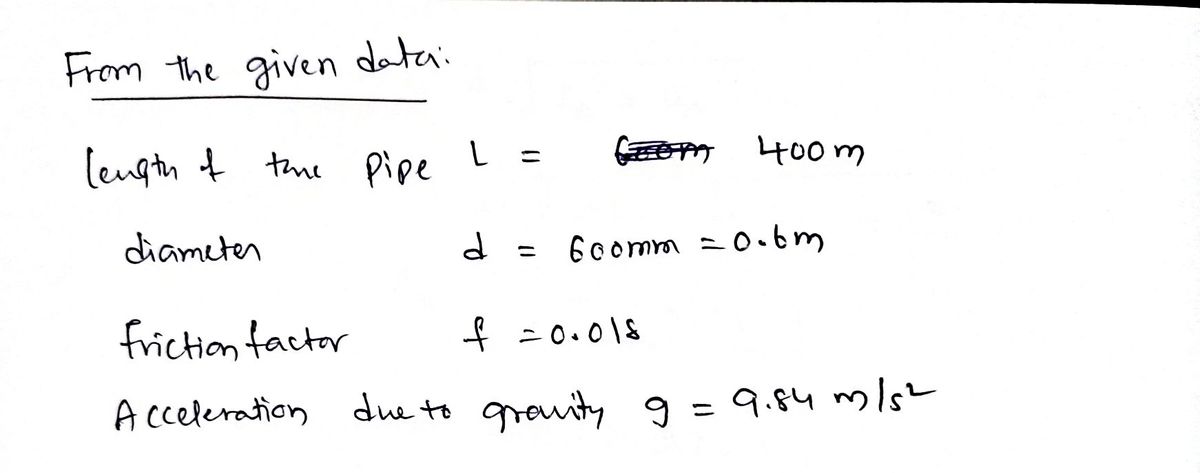 From the given data:
length of the pipe L = 400m
diameter d = 600mm = 0.6m
friction factor f = 0.018
Acceleration due to gravity g = 9.84 m/s²